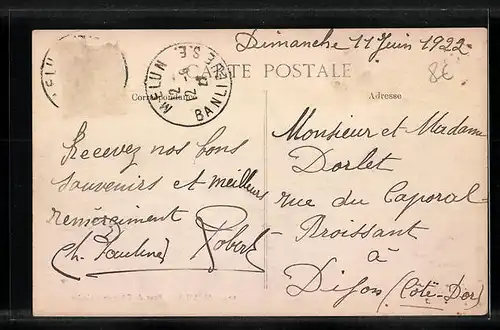 Dimanche 11 Juin 1922
8€
MELUN
MELUN S.E.
12 - 6
22
BANLIEUE
CARTE POSTALE
Correspondance
Adresse
Recevez nos bons
souvenirs et meilleurs
remerciment
(Ch. Pauline) Robert
Monsieur et Madame
Dorlet
rue du Caporal-
Broissant
à
Dijon (Côte-Dor)